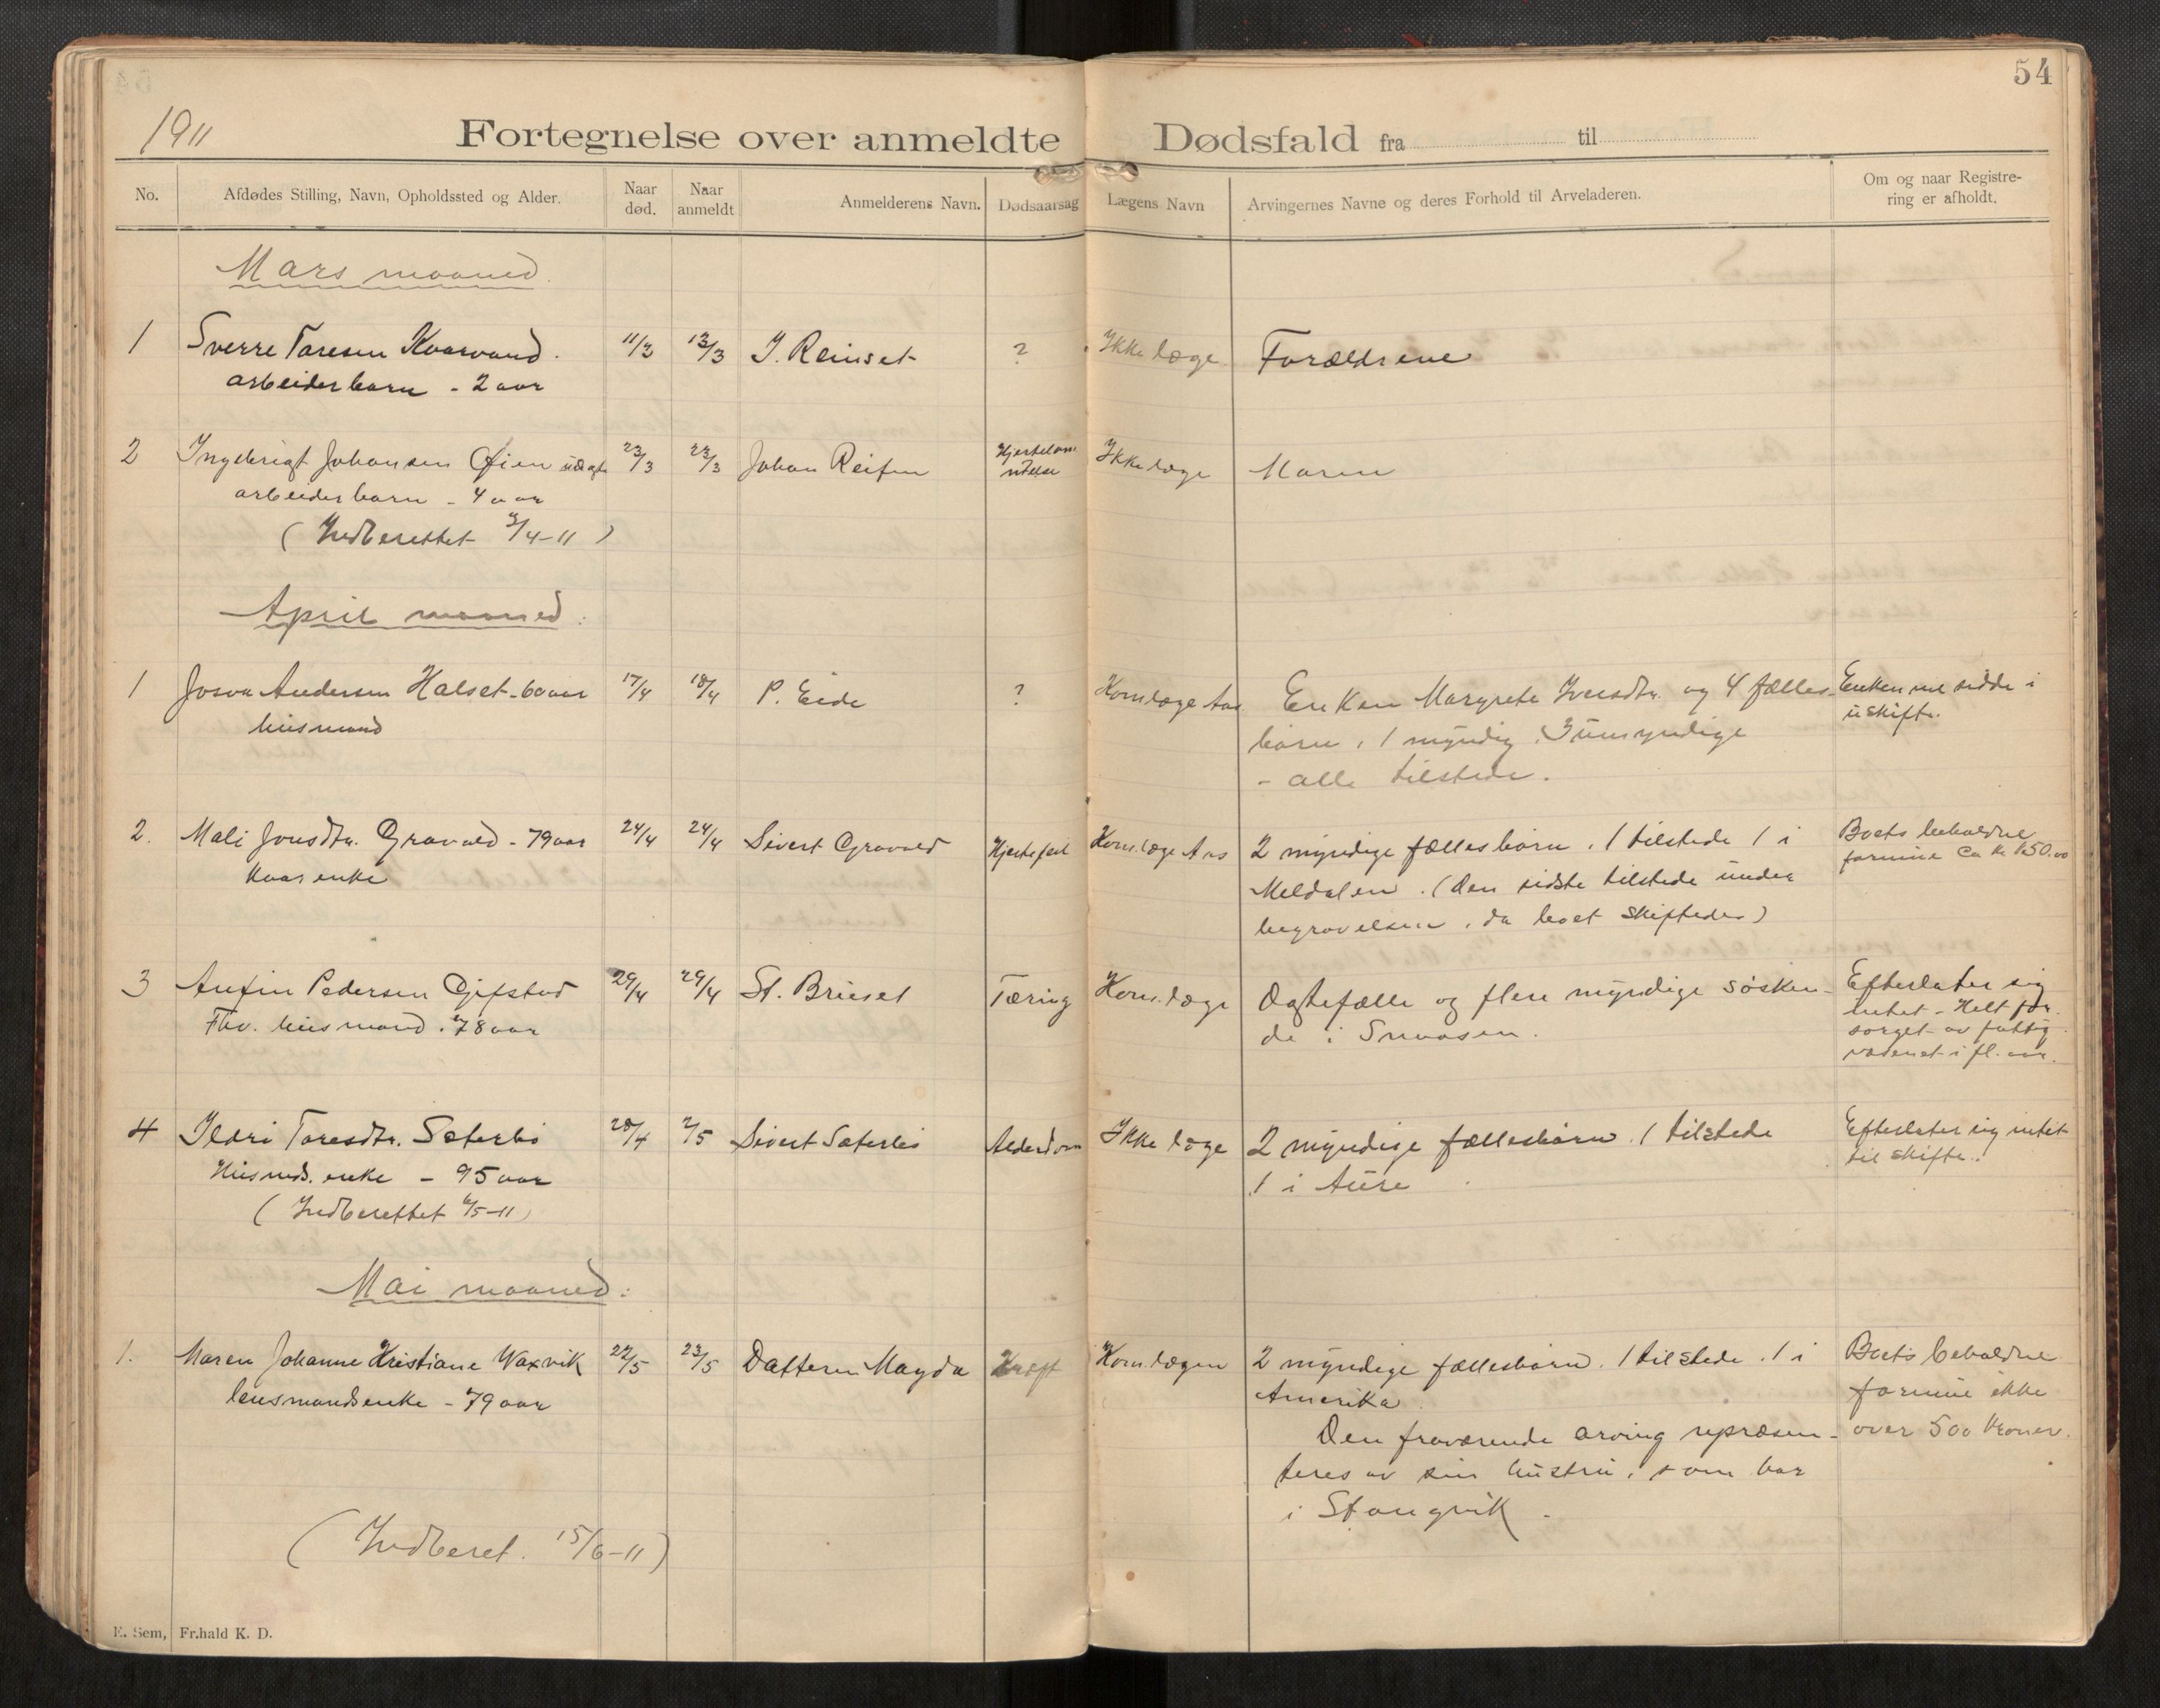 54
1911
Fortegnelse over anmeldte Dødsfald fra til
No.
Afdødes Stilling, Navn, Opholdssted og Alder.
Naar død.
Naar anmeldt
Anmelderens Navn.
Dødsaarsag
Lægens Navn
Arvingernes Navne og deres Forhold til Arveladeren.
Om og naar Registrering er afholdt.
Mars maaned.
1 Sverre Toresen Kvarvand. 11/3 13/3 J. Reinset ? Ikke læge Forældrene
arbeiderbarn - 2 aar
2 Ingebrigt Johansen Øien uægte 23/3 23/3 Johan Ikke læge Moren
arbeiderbarn - 4 aar
(Indberettet 3/4-11)
April maaned:
1 Josva Andersen Halset - 60 aar 17/4 18/4 P. Eide ? Kom.læge Aas Enken Margrete Iversdtr. og 4 fælles- Enken vil sidde i
husmand børn, 1 myndig, 3 umyndige uskifte.
- alle tilstede.
2. Mali Jonsdtr. Gravald - 79 aar 24/4 24/4 Sivert Gravald Hjertefeil Kom.læge Aas 2 myndige fællesbørn. 1 tilstede 1 i Boets beholdne
Kaarenke Meldalen. (den sidste tilstede under formue ca kr 150.00
begravelsen, da boet skiftedes)
3 Anfin Pedersen Gjefstad 29/4 29/4 St. Brieset Tæring Kom.læge Ægtefælle og flere myndige søsken- Efterlater sig
Fhv. husmand. 78 aar de i Snaasen. intet - Helt for-
sorget av fattig-
væsenet i fl. aar.
4 Ildri Toresdtr. Sæterbø 28/4 2/5 Sivert Sæterbø Alderdom Ikke læge 2 myndige fællesbørn. 1 tilstede Efterlater sig intet
Husmds. enke - 95 aar 1 i Aure til skifte.
(Indberettet 6/5-11)
Mai maaned:
1. Maren Johanne Kristiane Waxvik 22/5 23/5 Datteren Magda Kræft Kom.lægen 2 myndige fællesbørn. 1 tilstede. 1 i Boets beholdne
lensmandsenke - 79 aar Amerika. formue ikke
Den fraværende arving repræsen- over 500 kroner.
teres av sin hustru, som bor
i Stangvik.
(Indberet. 15/6-11)
E. Sem, Fr.hald K. D.